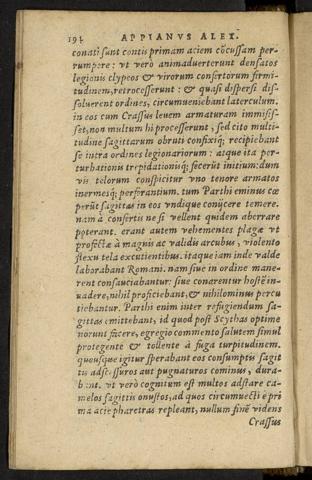 194 APPIANVS ALEX.
conati sunt contis primam aciem cōcussam per-
rumpere: vt verò animaduerterunt densatos
legionis clypeos & virorum consertorum firmi-
tudinem, retrocesserunt: & quasi dispersi dis-
soluerent ordines, circumueniebant laterculum.
in eos cum Crassus leuem armaturam immisis-
set, non multum hi processerunt, sed cito multi-
tudine sagittarum obruti confixiq; recipiebant
se intra ordines legionariorum: atque ita per-
turbationis trepidationisq; fecerūt initium: dum
vis telorum conspicitur vno tenore armatos
inermesq; perforantium. tum Parthi eminus cœ
perūt sagittas in eos vndique conijcere temere.
nam à confertis ne si vellent quidem aberrare
poterant. erant autem vehementes plagæ vt
profectæ à magnis ac validis arcubus, violento
flexu tela excutientibus. itaque iam inde valde
laborabant Romani. nam siue in ordine mane-
rent consauciabantur: siue conarentur hostē in-
uadere, nihil proficiebant, & nihilominus percu
tiebantur. Parthi enim inter refugiendum sa-
gittas emittebant, id quod post Scythas optime
nòrunt facere, egregio commento salutem simul
protegente & tollente à fuga turpitudinem.
quousque igitur sperabant eos consumptis sagit
tis adscessuros aut pugnaturos cominus, dura-
bant. vt verò cognitum est multos adstare ca-
melos sagittis onustos, ad quos circumuecti è pri
ma acie pharetras repleant, nullum finē videns
Crassus